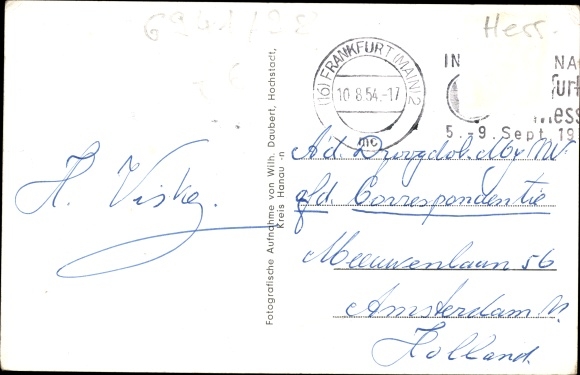 Herr.
(16) FRANKFURT (MAIN) 2
10.8.54.-17
mc
IN NA
furt
ess
5.-9. Sept. 19
Fotografische Aufnahme von Wilh. Daubert, Hochstadt,
Kreis Hanau
H.
Afd. Correspondentie
Meeuwenlaan 56
Amsterdam N.
Holland.